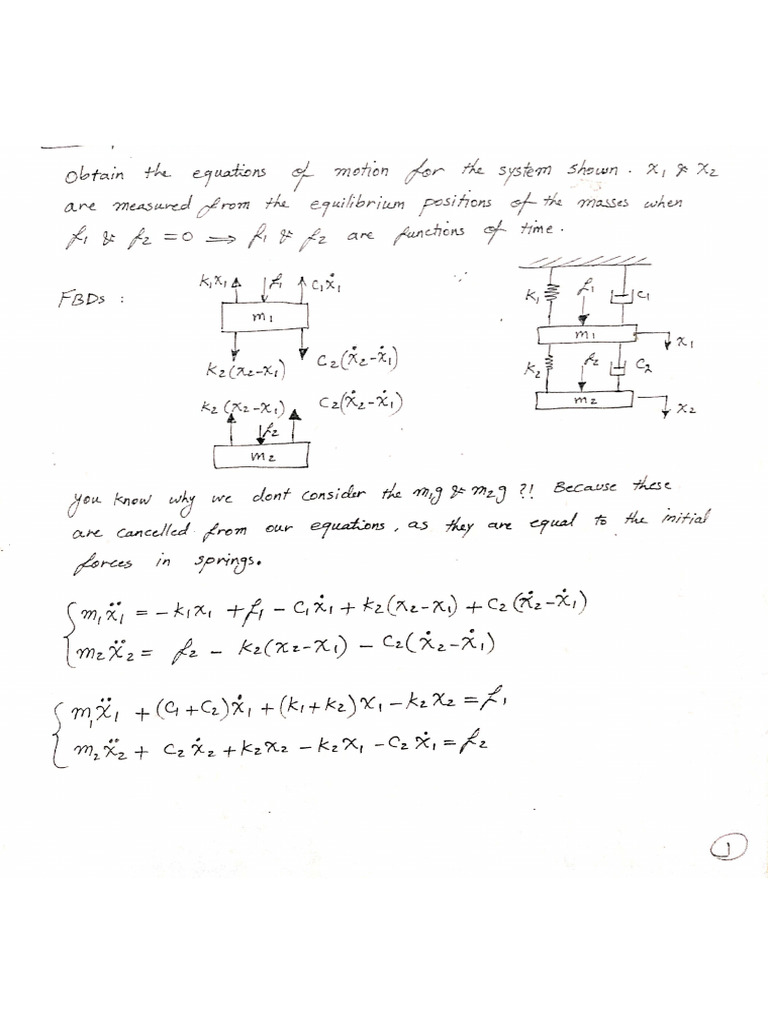 Obtain the equations of motion for the system shown. x₁ & x₂
are measured from the equilibrium positions of the masses when
f₁ & f₂ = 0 ⟹ f₁ & f₂ are functions of time.
FBDs :
k₁x₁ f₁ c₁ẋ₁
m₁
k₂(x₂-x₁) c₂(ẋ₂-ẋ₁)
k₂(x₂-x₁) c₂(ẋ₂-ẋ₁)
f₂
m₂
k₁ f₁ c₁
m₁ x₁
k₂ f₂ c₂
m₂ x₂
You know why we dont consider the m₁g & m₂g ?! Because these
are cancelled from our equations, as they are equal to the initial
forces in springs.
m₁ẍ₁ = -k₁x₁ + f₁ - c₁ẋ₁ + k₂(x₂-x₁) + c₂(ẋ₂-ẋ₁)
m₂ẍ₂ = f₂ - k₂(x₂-x₁) - c₂(ẋ₂-ẋ₁)
m₁ẍ₁ + (c₁+c₂)ẋ₁ + (k₁+k₂)x₁ - k₂x₂ = f₁
m₂ẍ₂ + c₂ẋ₂ + k₂x₂ - k₂x₁ - c₂ẋ₁ = f₂
1